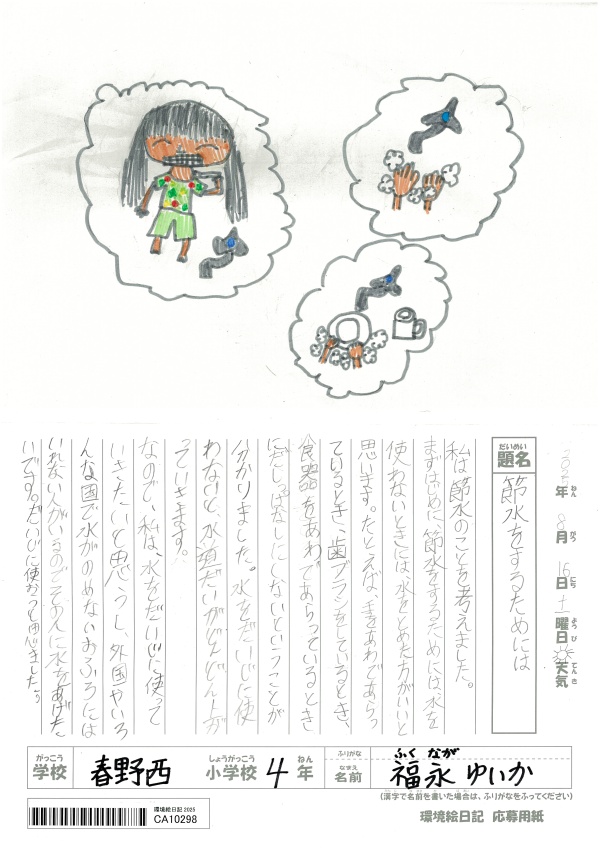 2025年 8月 16日 土曜日 天気
ねん がつ にち ようび てんき
だいめい
題名
節水をするためには
私は節水のことを考えました。
まずはじめに、節水をするためには、水を
使わないときには、水をとめた方がいいと
思います。たとえば、手をあわであらっ
ているとき、歯ブラシをしているとき、
食器をあわであらっているとき
にだしっぱなしにしないということが
分かりました。水をだいじに使
わないと、水道だいがどんどん上が
っていきます。
なので、私は、水をだいじに使って
いきたいと思うし、外国やいろ
んな国で水がのめないおふろには
いれない人がいるのでその人に水をあげた
いです。だいじに使おうと思いました。
がっこう
学校
春野西
しょうがっこう
小学校
4
ねん
年
ふりがな
なまえ
名前
ふく なが
福永 ゆいか
(漢字で名前を書いた場合は、ふりがなをふってください)
環境絵日記 2025
CA10298
環境絵日記 応募用紙